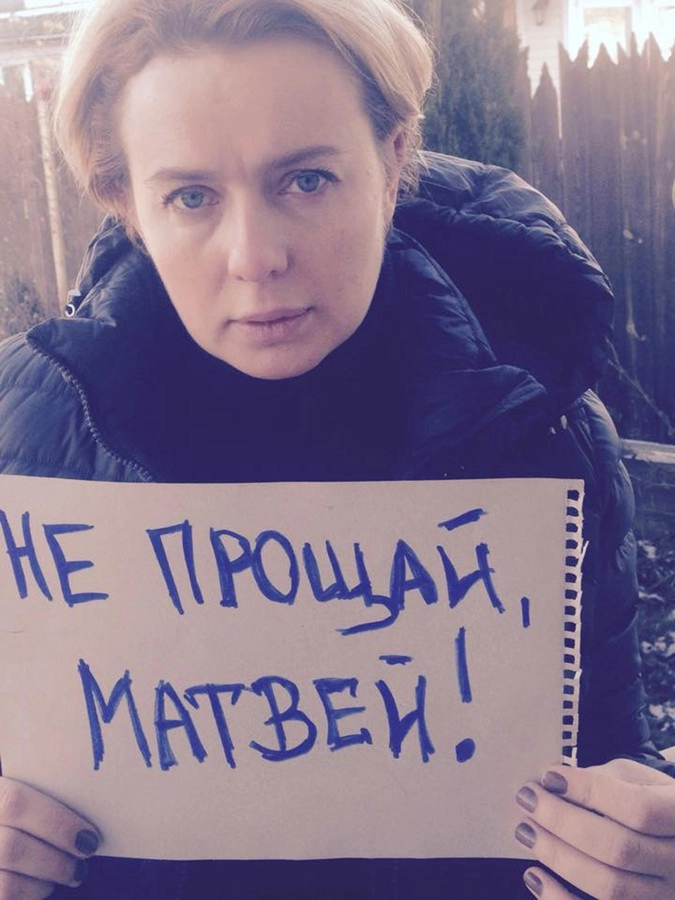 НЕ ПРОЩАЙ,
МАТВЕЙ!